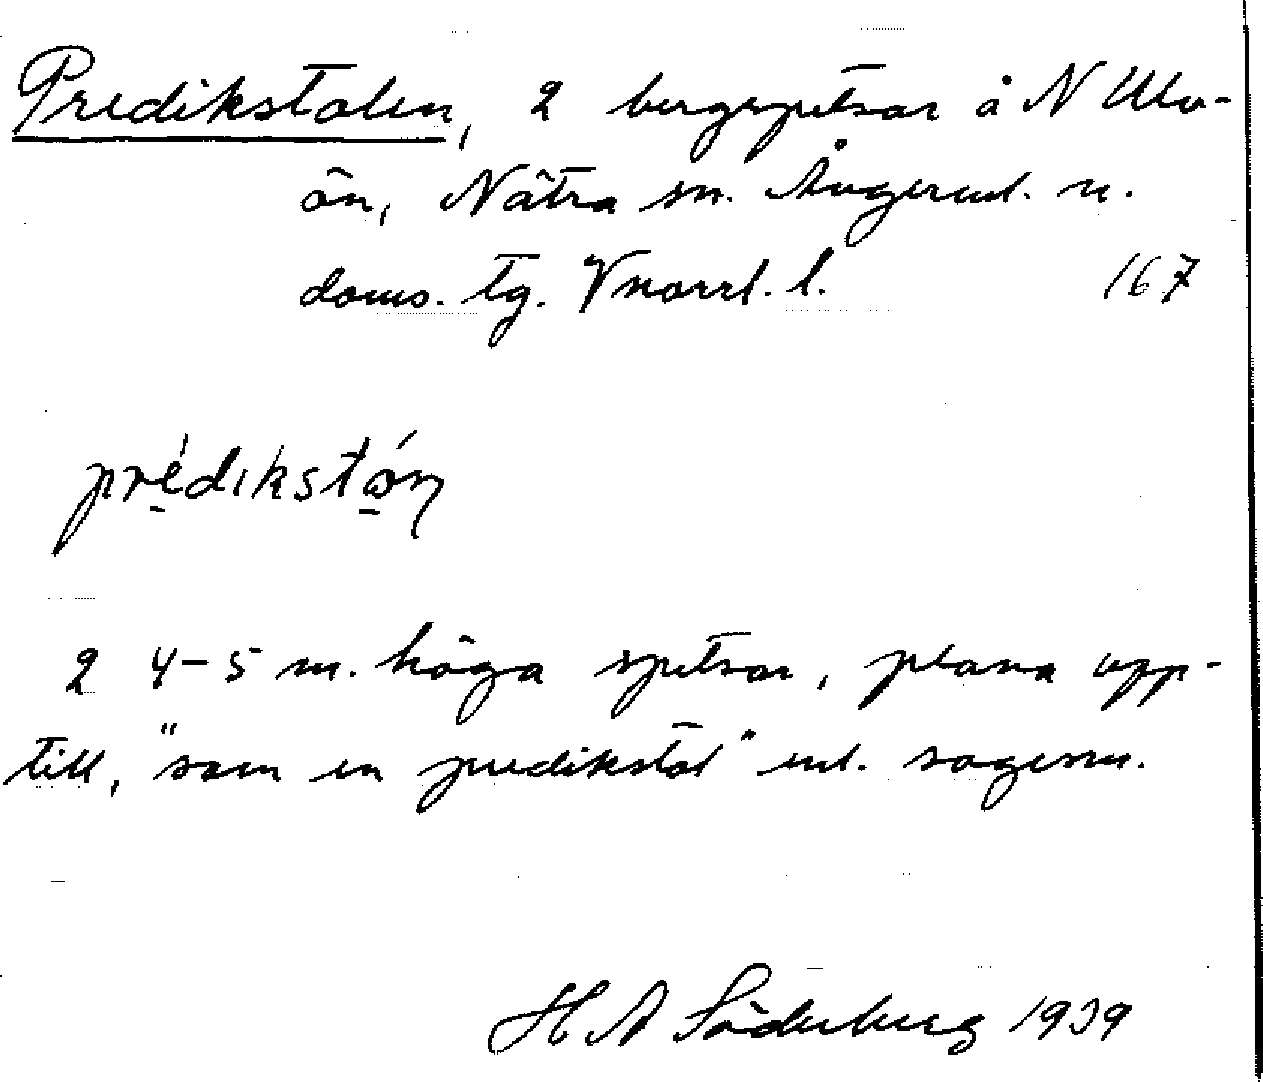 Predikstolen, 2 bergspetsar å N Ulv-
ön, Nätra sn. Ångerml. n.
doms. tg. Vnorrl. l. 167
prédikstón
2 4-5 m. höga spetsar, plana upp-
till, "som en predikstol" enl. sagesm.
H A Söderberg 1939